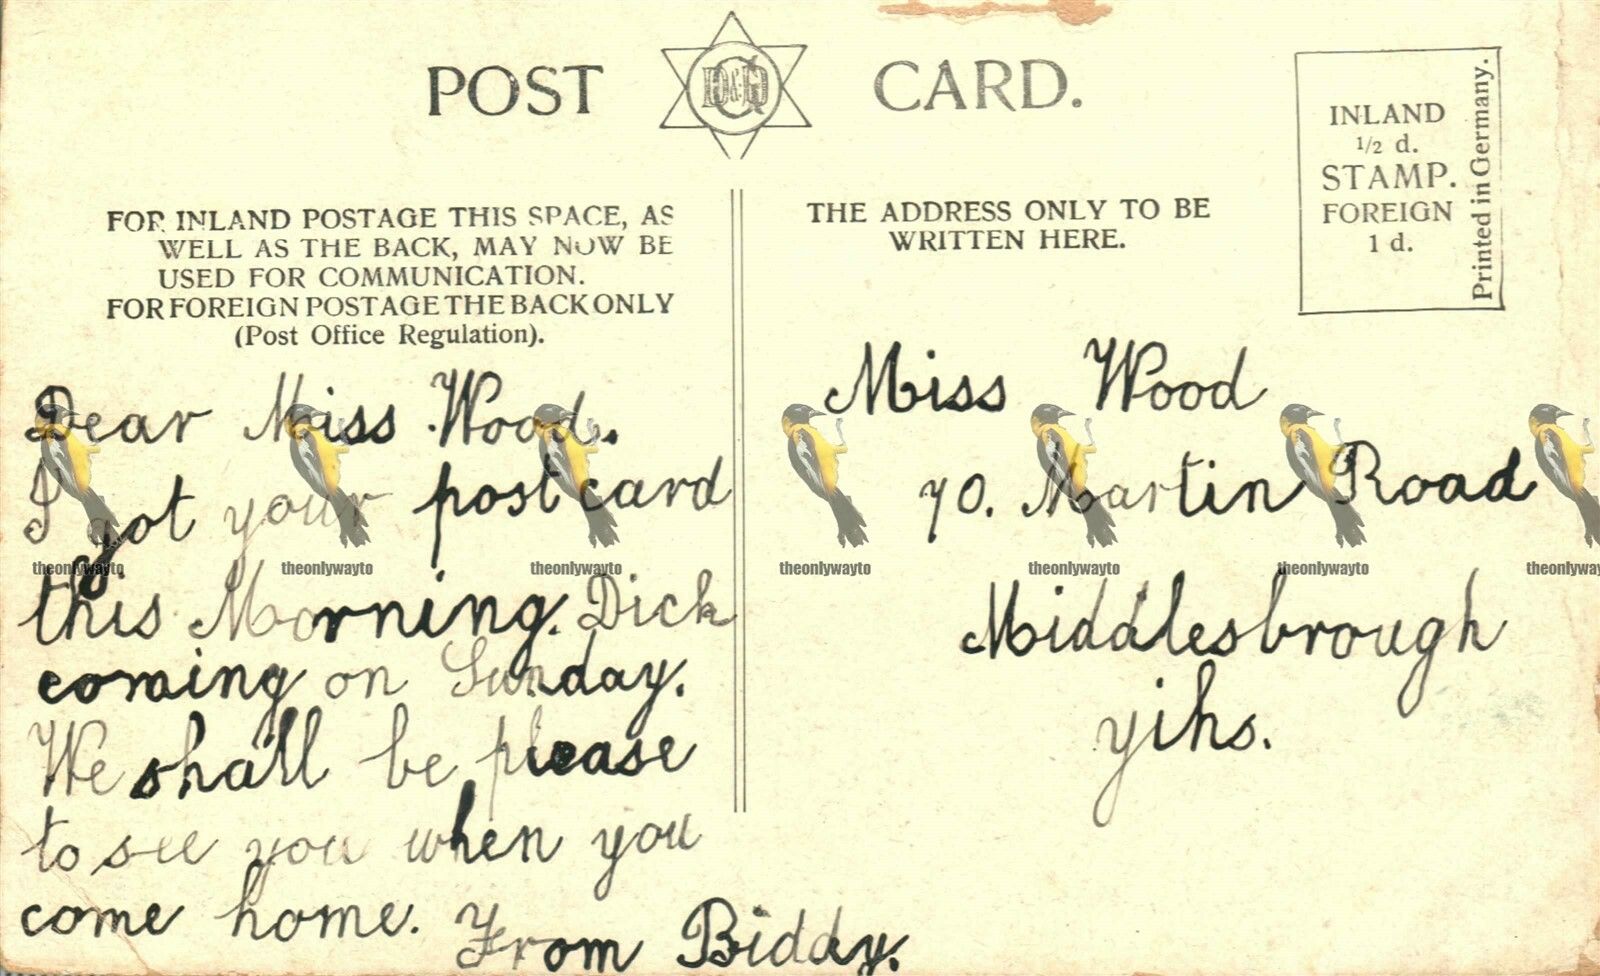 POST CARD.
D&GD
INLAND
1/2 d.
STAMP.
FOREIGN
1 d.
Printed in Germany.
FOR INLAND POSTAGE THIS SPACE, AS
WELL AS THE BACK, MAY NOW BE
USED FOR COMMUNICATION.
FOR FOREIGN POSTAGE THE BACK ONLY
(Post Office Regulation).
THE ADDRESS ONLY TO BE
WRITTEN HERE.
Dear Miss Wood.
I got your postcard
this Morning. Dick
coming on Sunday.
We shall be please
to see you when you
come home. From Biddy.
Miss Wood
70. Martin Road
Middlesbrough
yihs.
theonlywayto theonlywayto theonlywayto theonlywayto theonlywayto theonlywayto theonlyway